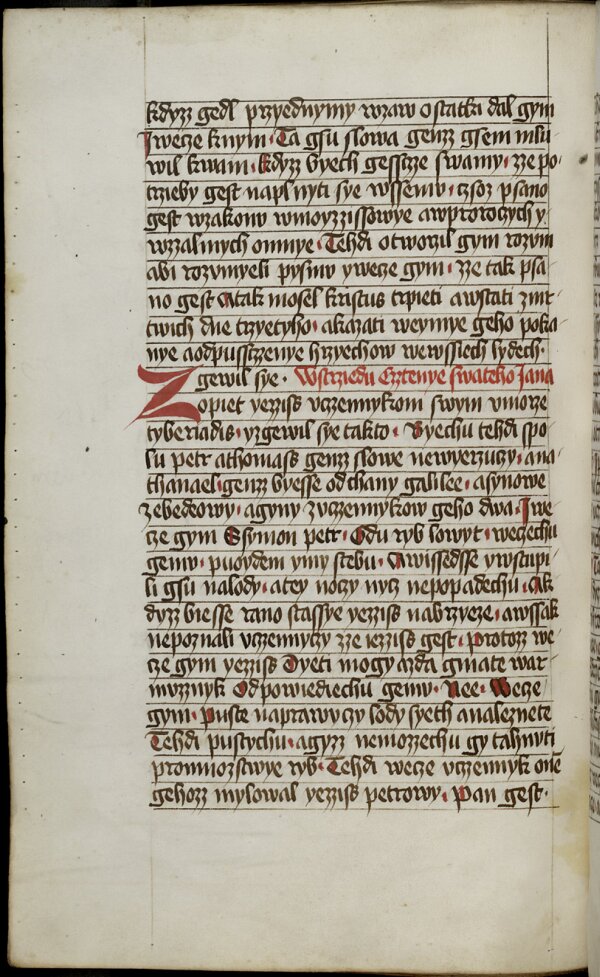 kdyzz gedl przyednymy wzaw ostatki dal gym
Iwecze knym · Ta gsu slowa genzz gsem mlu
wil kwam · kdyzz byech gesstze swamy · zze po
trzieby gest naplnyti sye wssemw · czsoz psano
gest wzakonw wmoyzzissowye awproroczych y
wzzalmych omnye · Tehdi otworzil gym rozym
abi rozymyeli pysmw ywecze gym · zze tak psa
no gest Atak mosel kristus trpieti awstati zmr
twich dne trzyetyho · akazati weymye geho poka
nye aodpusstzzenye hrzyechow wewssiech lydech ·
Zgewil sye · Wstrziedu Cztenye swateho Jana
opiet yezziss vczennykom swym vmorze
tyberiadis · yzgewil sye takto · Byechu tehdi spo
lu petr athomass genzz slowe newyerzuczy · ana
thanael · genzz byesse odchany galilee · asynowe
zebedeowy · agyny zvczennykow geho dwa · Iwe
cze gym Ssymon petr · Gdu ryb lowyt · weczechu
gemw · puoydem ymy stebu · Awissedsse ywstupi
li gsu nalody · atey noczy nycz nepopadechu · Ak
dyzz biesse rano stassye yezziss nabrzyeze · awssak
nepoznali vczennyczy zze iezziss gest · Protozz we
cze gym yezziss Dyeti mogy azda gmate war
myzznyk Odpowiediechu gemw · Nee · Wecze
gym · Puste naprawyczy lody syeth analeznete
Tehdi pustychu · agyzz nemozzechu gy tahnyti
promnozstwye ryb · Tehdi wecze vczennyk one
gehozz mylowal yezziss petrowy · Pan gest ·